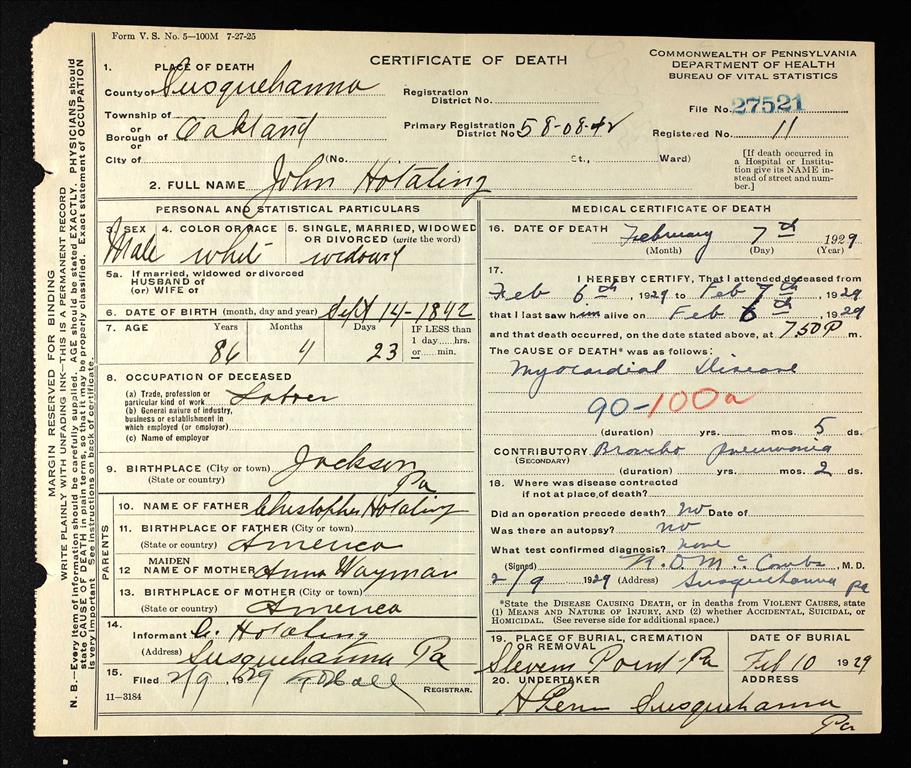 Form V. S. No. 5—100M 7-27-25
CERTIFICATE OF DEATH
COMMONWEALTH OF PENNSYLVANIA
DEPARTMENT OF HEALTH
BUREAU OF VITAL STATISTICS
1. PLACE OF DEATH
County of Susquehanna
Township of
or
Borough of Oakland
or
City of (No. St., Ward)
Registration
District No.
Primary Registration
District No. 58-08-42
File No. 27521
Registered No. 11
[If death occurred in
a Hospital or Institu-
tion give its NAME in-
stead of street and num-
ber.]
2. FULL NAME John Hotaling
PERSONAL AND STATISTICAL PARTICULARS
3. SEX
Male
4. COLOR OR RACE
white
5. SINGLE, MARRIED, WIDOWED
OR DIVORCED (write the word)
widowed
5a. If married, widowed or divorced
HUSBAND of
(or) WIFE of
6. DATE OF BIRTH (month, day and year) Sept 14-1842
7. AGE Years Months Days IF LESS than
1 day....hrs.
or.....min.
86 4 23
8. OCCUPATION OF DECEASED
(a) Trade, profession or
particular kind of work Labor
(b) General nature of industry,
business or establishment in
which employed (or employer)
(c) Name of employer
9. BIRTHPLACE (City or town) Jackson
(State or country) Pa
PARENTS
10. NAME OF FATHER Christopher Hotaling
11. BIRTHPLACE OF FATHER (City or town)
(State or country) America
12 MAIDEN
NAME OF MOTHER Anna Wayman
13. BIRTHPLACE OF MOTHER (City or town)
(State or country) America
14. Informant G. Hotaling
(Address) Susquehanna Pa
15. Filed 2/9, 1929
REGISTRAR.
11—3184
MEDICAL CERTIFICATE OF DEATH
16. DATE OF DEATH February 7th 1929
(Month) (Day) (Year)
17. I HEREBY CERTIFY, That I attended deceased from
Feb 6th, 1929 to Feb 7th, 1929
that I last saw him alive on Feb 6th, 1929
and that death occurred, on the date stated above, at 7.50 P m.
The CAUSE OF DEATH* was as follows:
Myocardial Disease
90-100a
(duration) yrs. mos. 5 ds.
CONTRIBUTORY Broncho pneumonia
(SECONDARY)
(duration) yrs. mos. 2 ds.
18. Where was disease contracted
if not at place of death?
Did an operation precede death? no Date of
Was there an autopsy? no
What test confirmed diagnosis? none
(Signed) McCombs, M. D.
2/9 1929 (Address) Susquehanna Pa
*State the DISEASE CAUSING DEATH, or in deaths from VIOLENT CAUSES, state
(1) MEANS AND NATURE OF INJURY, and (2) whether ACCIDENTAL, SUICIDAL, or
HOMICIDAL. (See reverse side for additional space.)
19. PLACE OF BURIAL, CREMATION
OR REMOVAL
Stevens Point-Pa
DATE OF BURIAL
Feb 10 1929
20. UNDERTAKER ADDRESS
Susquehanna
Pa
MARGIN RESERVED FOR BINDING
WRITE PLAINLY WITH UNFADING INK—THIS IS A PERMANENT RECORD
N. B.—Every item of information should be carefully supplied. AGE should be stated EXACTLY. PHYSICIANS should
state CAUSE OF DEATH in plain terms, so that it may be properly classified. Exact statement of OCCUPATION
is very important. See instructions on back of certificate.